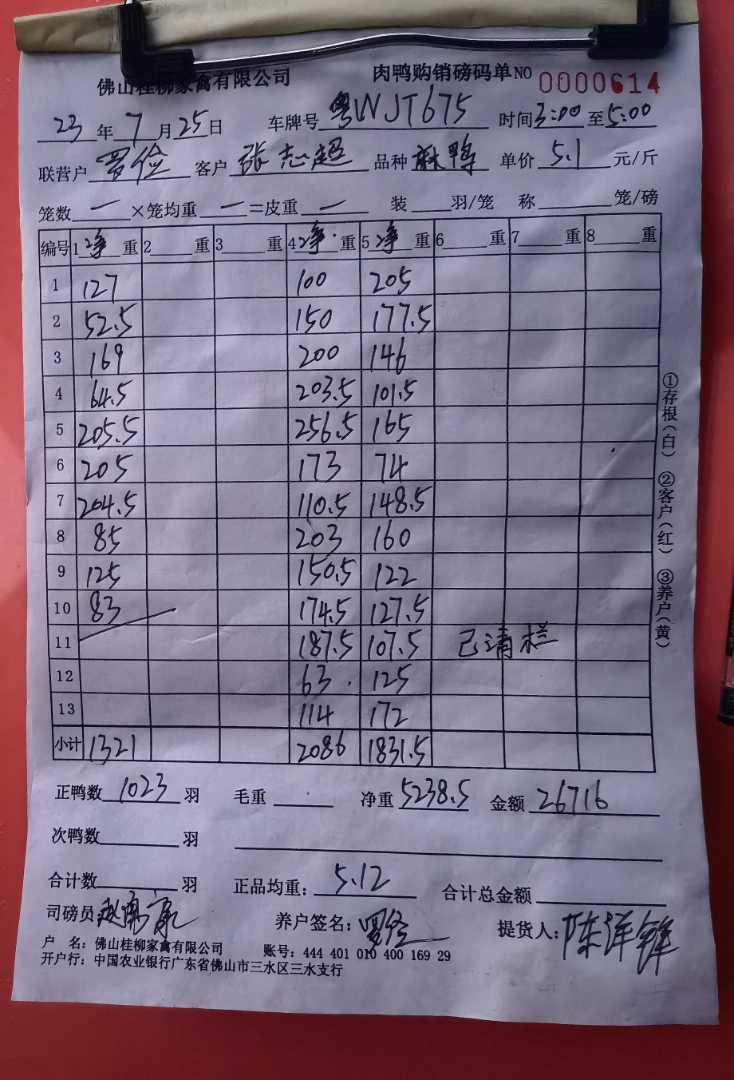 佛山桂柳家禽有限公司 肉鸭购销磅码单 NO 0000614
23年7月25日 车牌号 粤WJT675 时间 3:00 至 5:00
联营户 罗俭 客户 张志超 品种 麻鸭 单价 5.1 元/斤
笼数 一 ×笼均重 一 =皮重 一 装 羽/笼 称 笼/磅
编号 1 净 重 2 重 3 重 4 净 重 5 净 重 6 重 7 重 8 重
1 127 100 205
2 52.5 150 177.5
3 169 200 146
4 64.5 203.5 101.5
5 205.5 256.5 165
6 205 173 74
7 204.5 110.5 148.5
8 85 203 160
9 125 150.5 122
10 83 174.5 127.5
11 187.5 107.5 已清栏
12 63 125
13 114 172
小计 1321 2086 1831.5
①存根(白) ②客户(红) ③养户(黄)
正鸭数 1023 羽 毛重 净重 5238.5 金额 26716
次鸭数 羽
合计数 羽 正品均重: 5.12 合计总金额
司磅员 养户签名: 罗俭 提货人: 陈洋锋
户 名: 佛山桂柳家禽有限公司 账号: 444 401 010 400 169 29
开户行: 中国农业银行广东省佛山市三水区三水支行